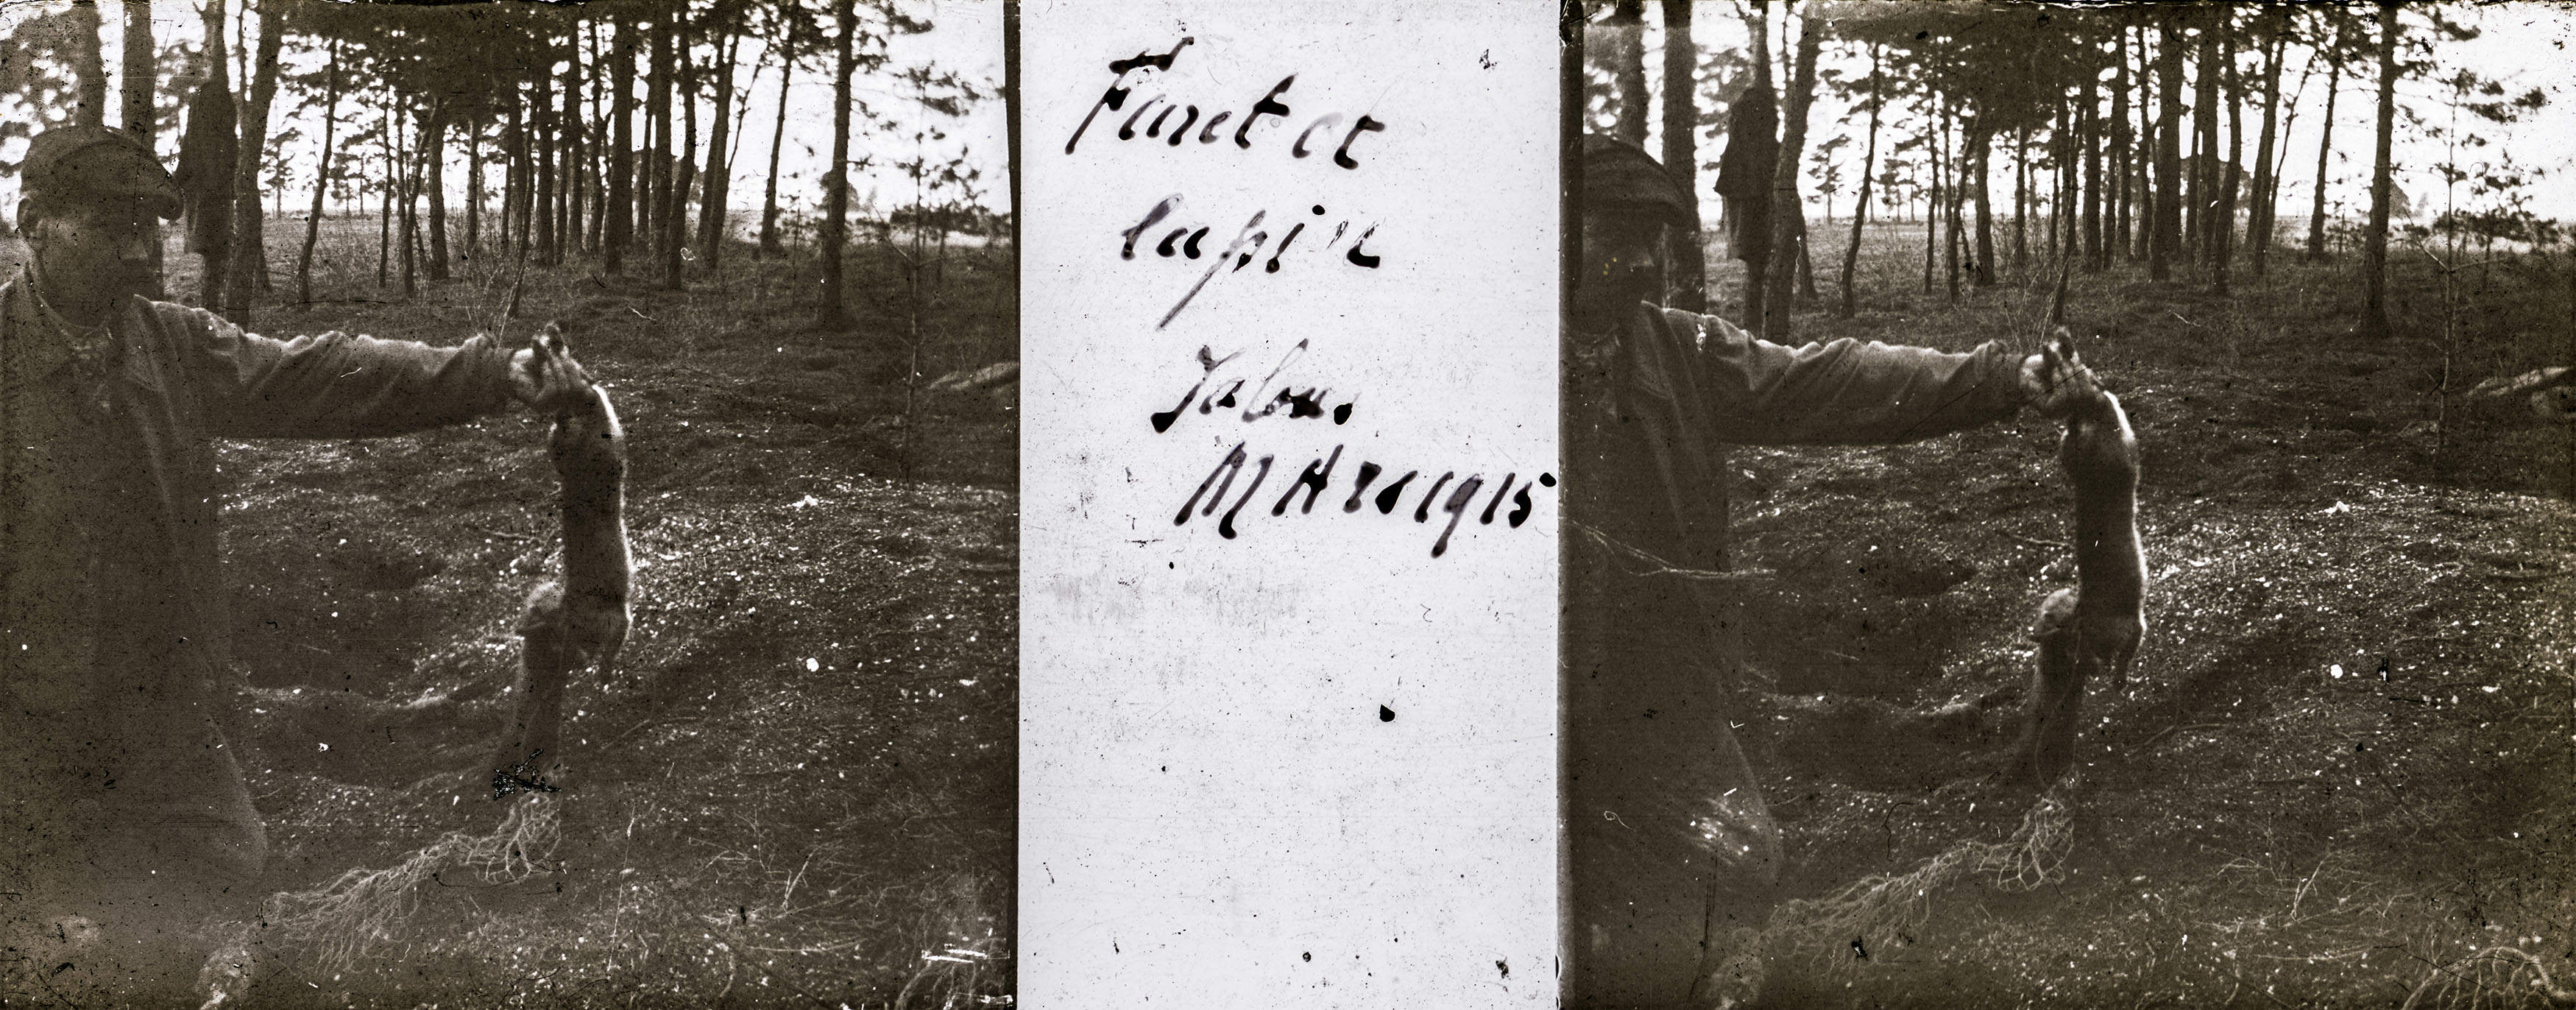 Furet et
lapin
Jalons
Mars 1915